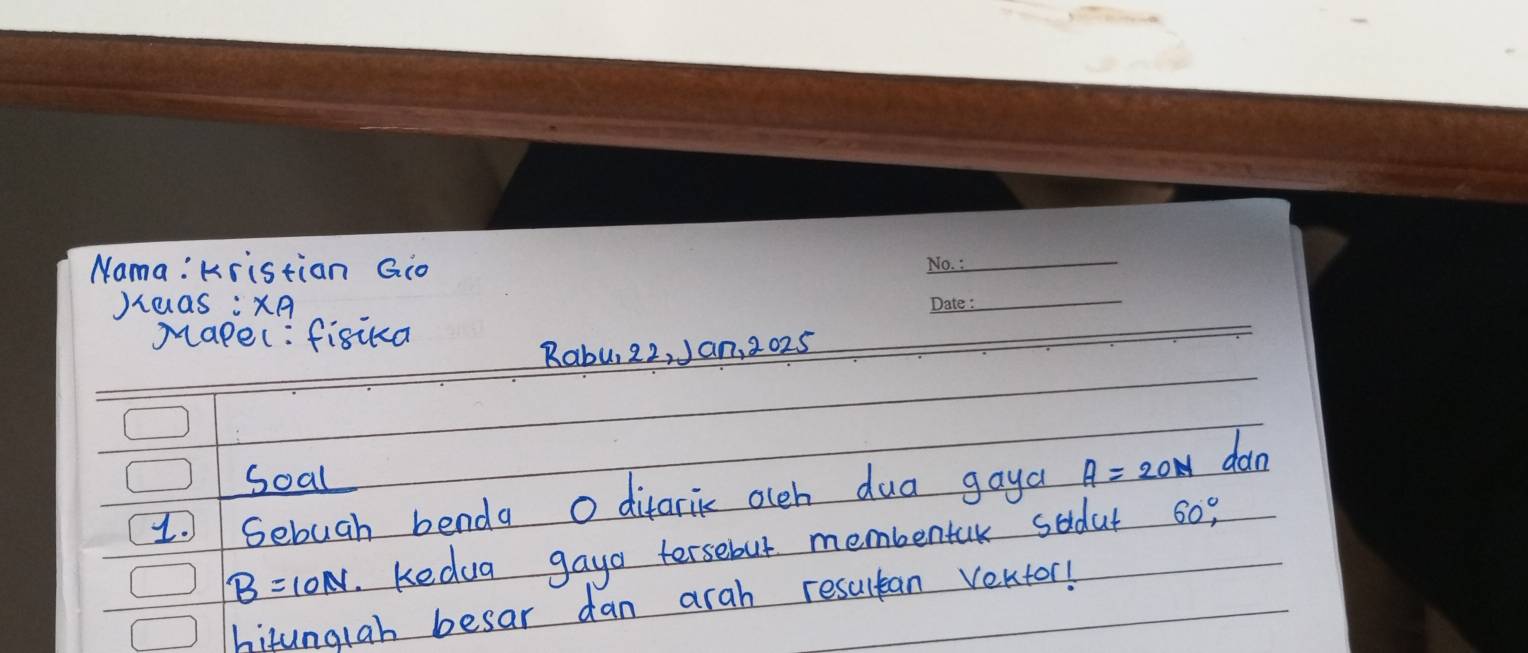 Nama: Kristian Gio
No. :
Kelas : XA
Date :
Mapel : fisika
Rabu, 22, Jan, 2025
Soal
1. Sebuah benda O ditarik oleh dua gaya A = 20N dan
B = 10N. Kedua gaya tersebut membentuk sudut 60°,
hitunglah besar dan arah resultan vektor!